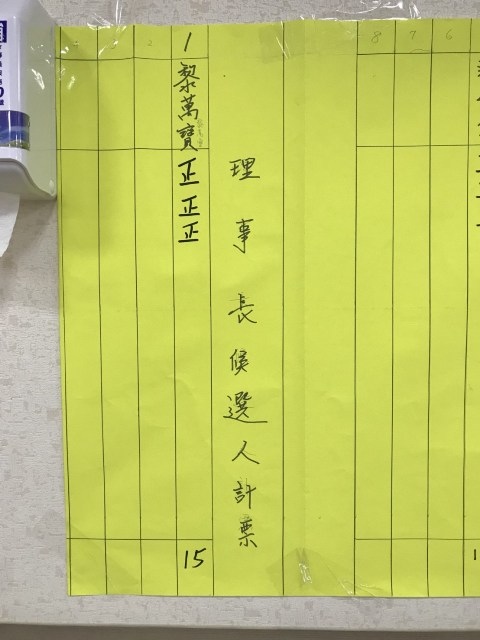 8 7 6
理事長候選人計票
1
黎萬寶
正正正
15
2